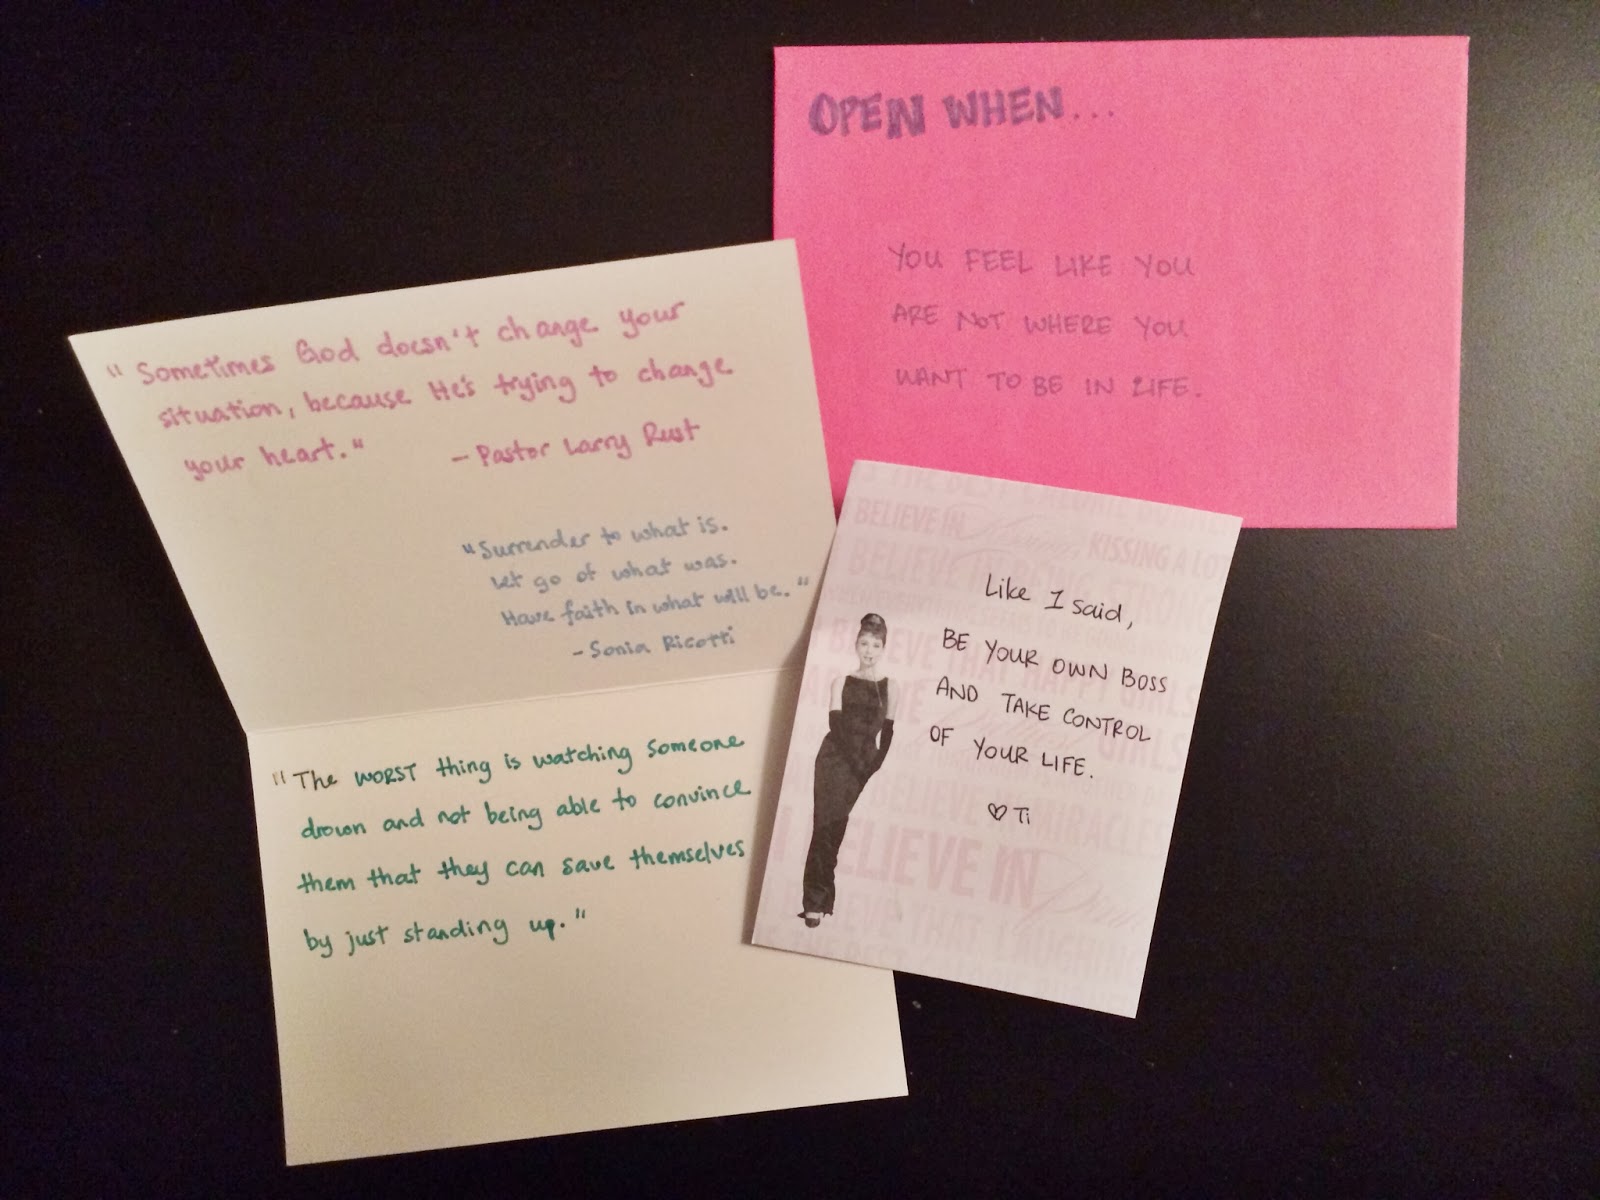 OPEN WHEN...
YOU FEEL LIKE YOU
ARE NOT WHERE YOU
WANT TO BE IN LIFE.
"Sometimes God doesn't change your
situation, because He's trying to change
your heart." - Pastor Larry Rust
"Surrender to what is.
Let go of what was.
Have faith in what will be."
- Sonia Ricotti
"The WORST thing is watching someone
drown and not being able to convince
them that they can save themselves
by just standing up."
Like I said,
BE YOUR OWN BOSS
AND TAKE CONTROL
OF YOUR LIFE.
♡ Ti
BELIEVE IN KISSING A LOT
BELIEVE THAT HAPPY GIRLS
GIRLS
BELIEVE IN MIRACLES
I BELIEVE IN